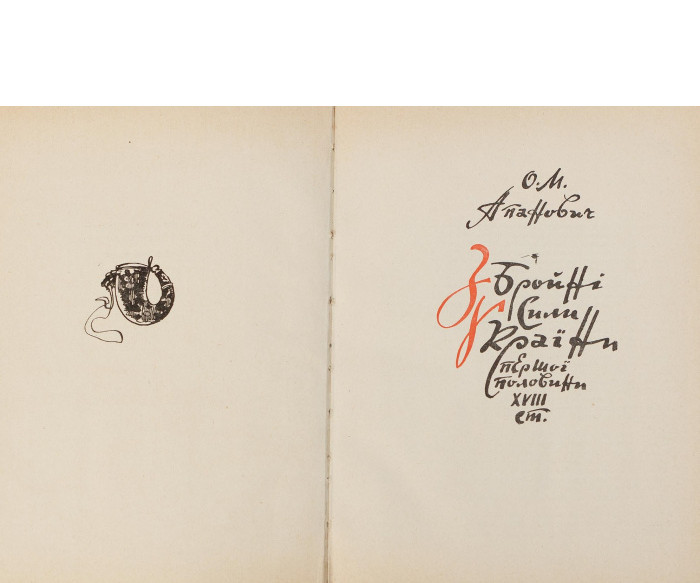 О.М.
Апанович
Збройні
Сили
України
першої
половини
XVIII
ст.